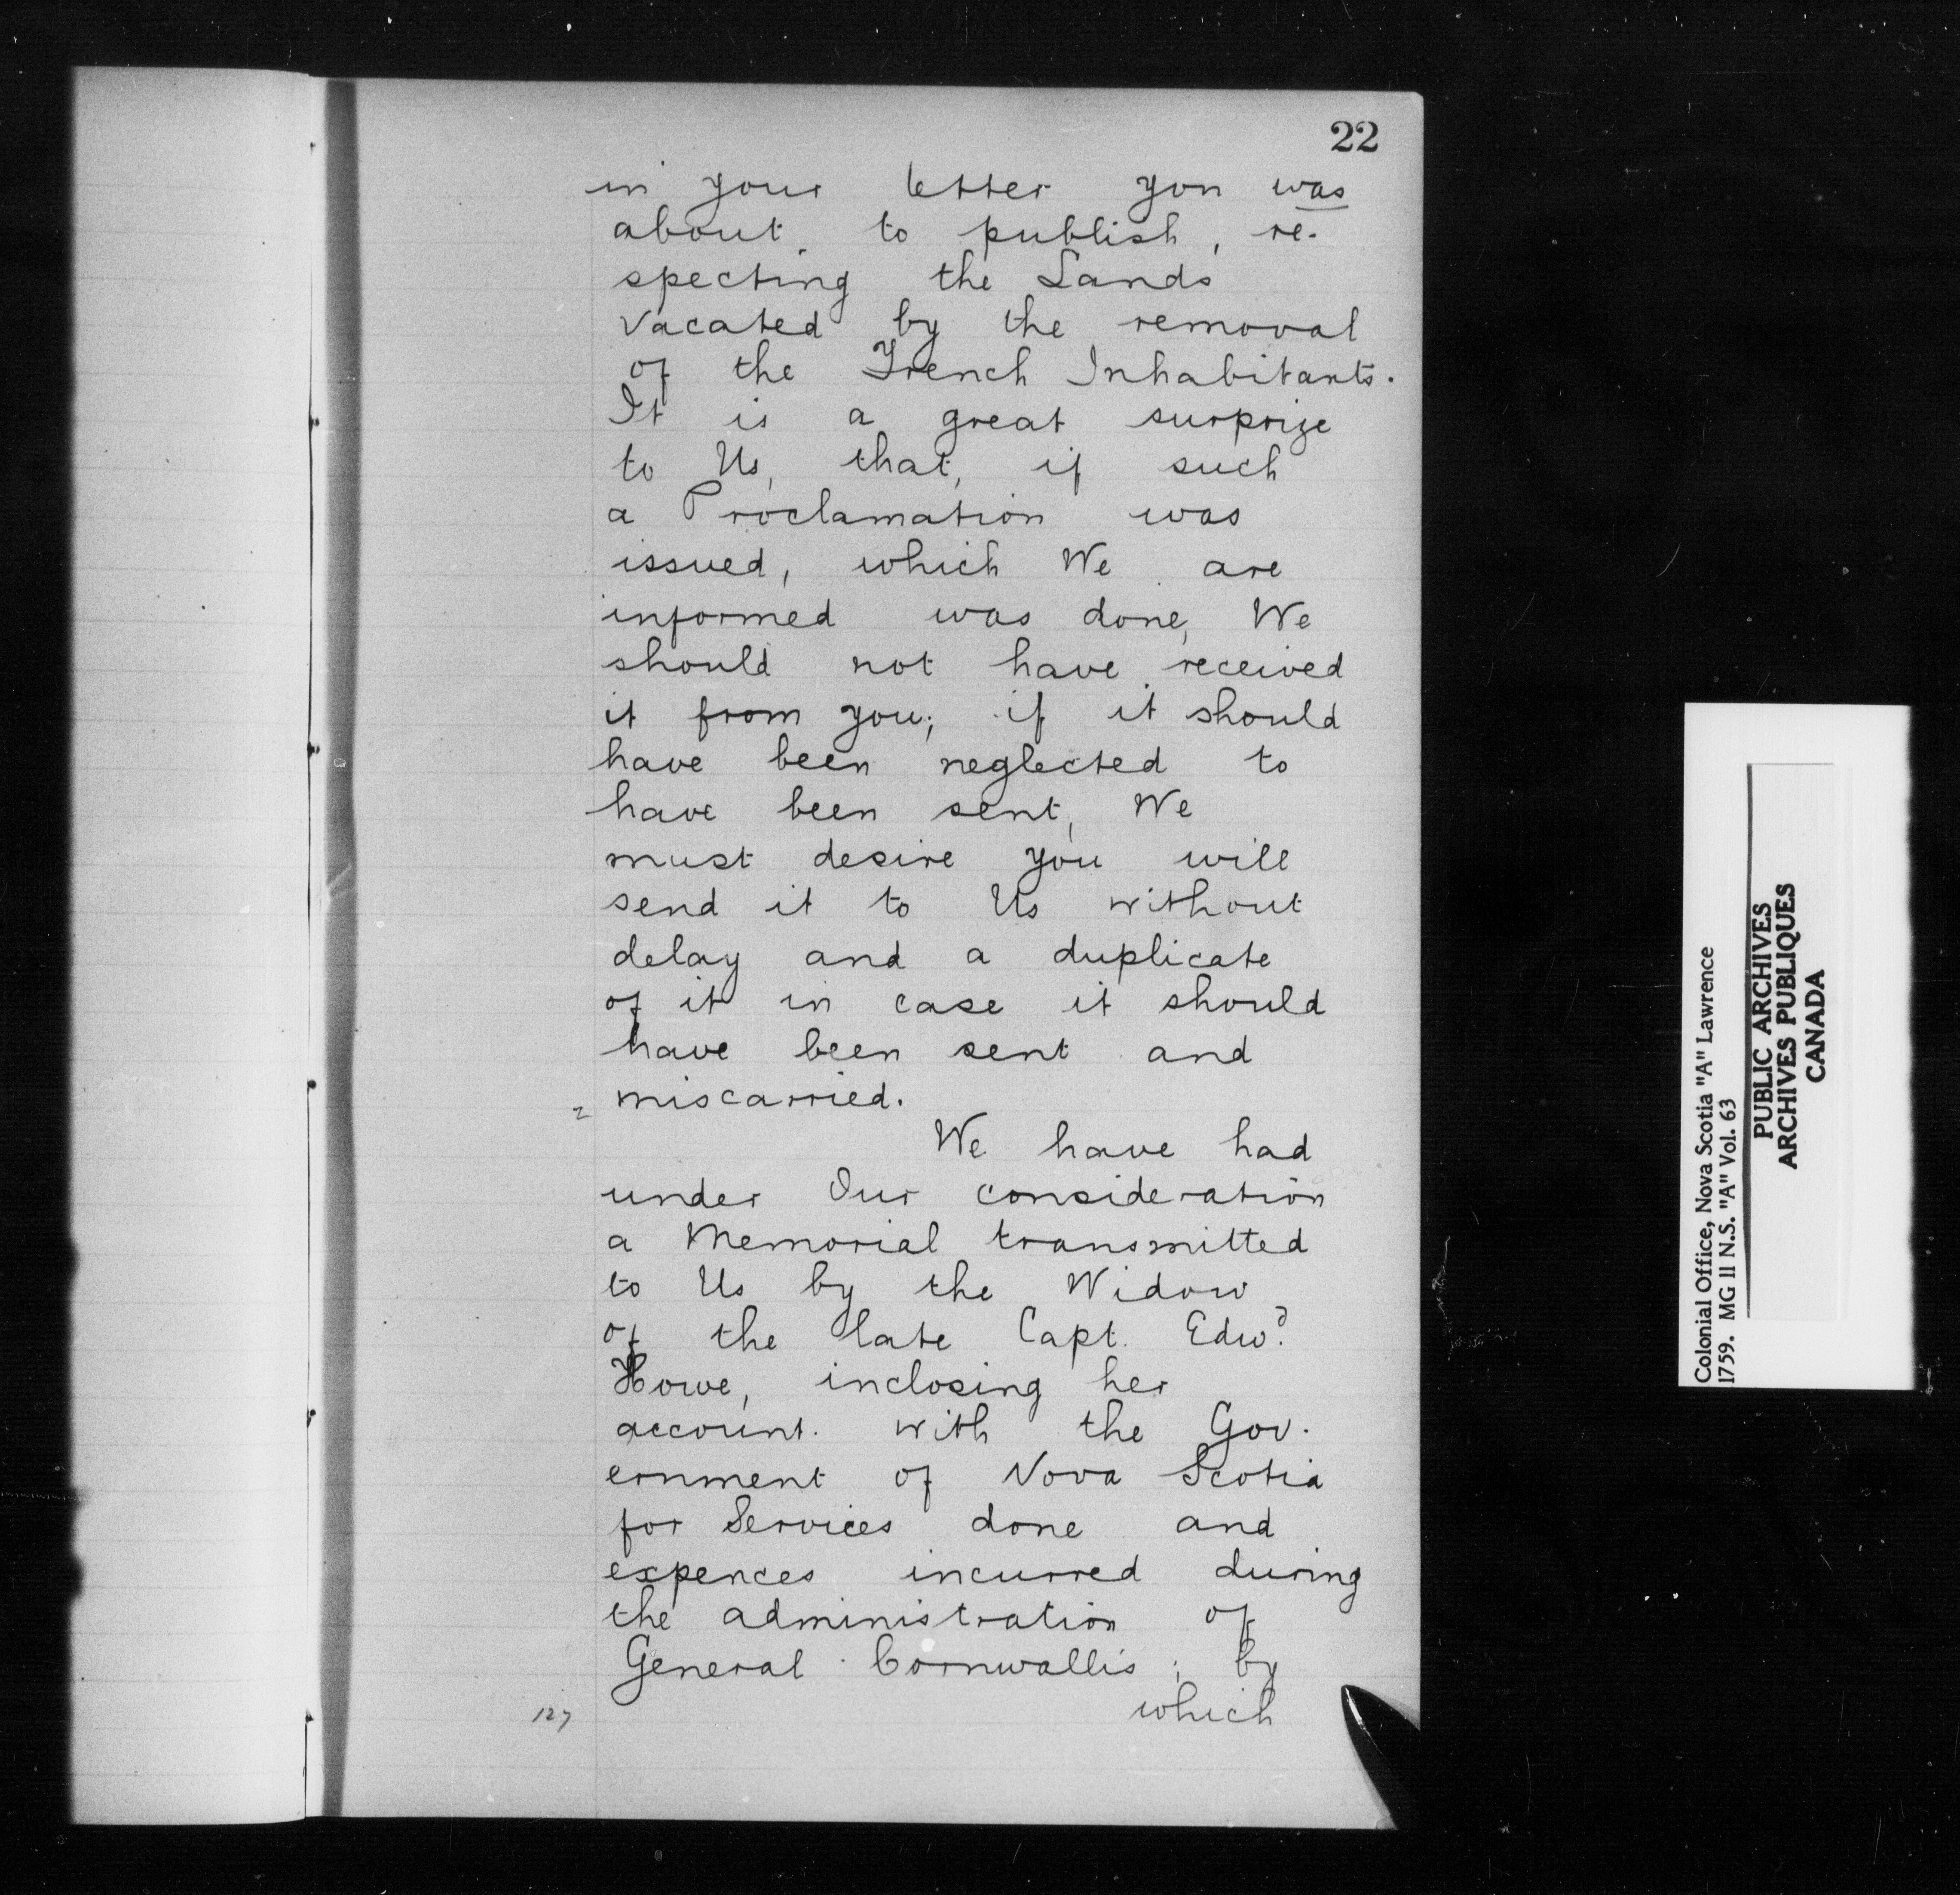 22
in your letter you was
about to publish, re-
specting the Lands
vacated by the removal
of the French Inhabitants.
It is a great surprize
to Us, that, if such
a Proclamation was
issued, which We are
informed was done, We
should not have received
it from you; if it should
have been neglected to
have been sent, We
must desire you will
send it to Us without
delay and a duplicate
of it in case it should
have been sent and
miscarried.
We have had
under Our consideration
a Memorial transmitted
to Us by the Widow
of the late Capt. Edwd.
Howe, inclosing her
account with the Gov-
ernment of Nova Scotia
for Services done and
expences incurred during
the administration of
General Cornwallis; by
which
127
Colonial Office, Nova Scotia "A" Lawrence
1759. MG 11 N.S. "A" Vol. 63
PUBLIC ARCHIVES
ARCHIVES PUBLIQUES
CANADA